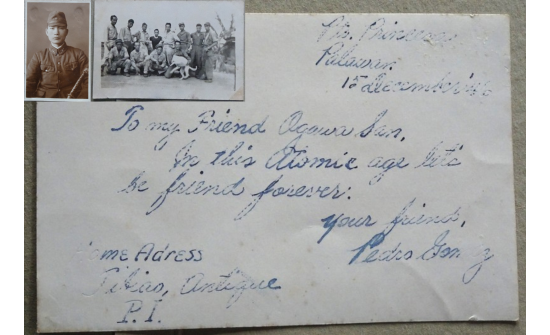 Pto. Princesa
Palawan
15 December 1946
To my Friend Ogawa San,
In this Atomic age let's
be friend forever:
your friend,
Pedro
Home Adress
Tibiao, Antique
P.I.